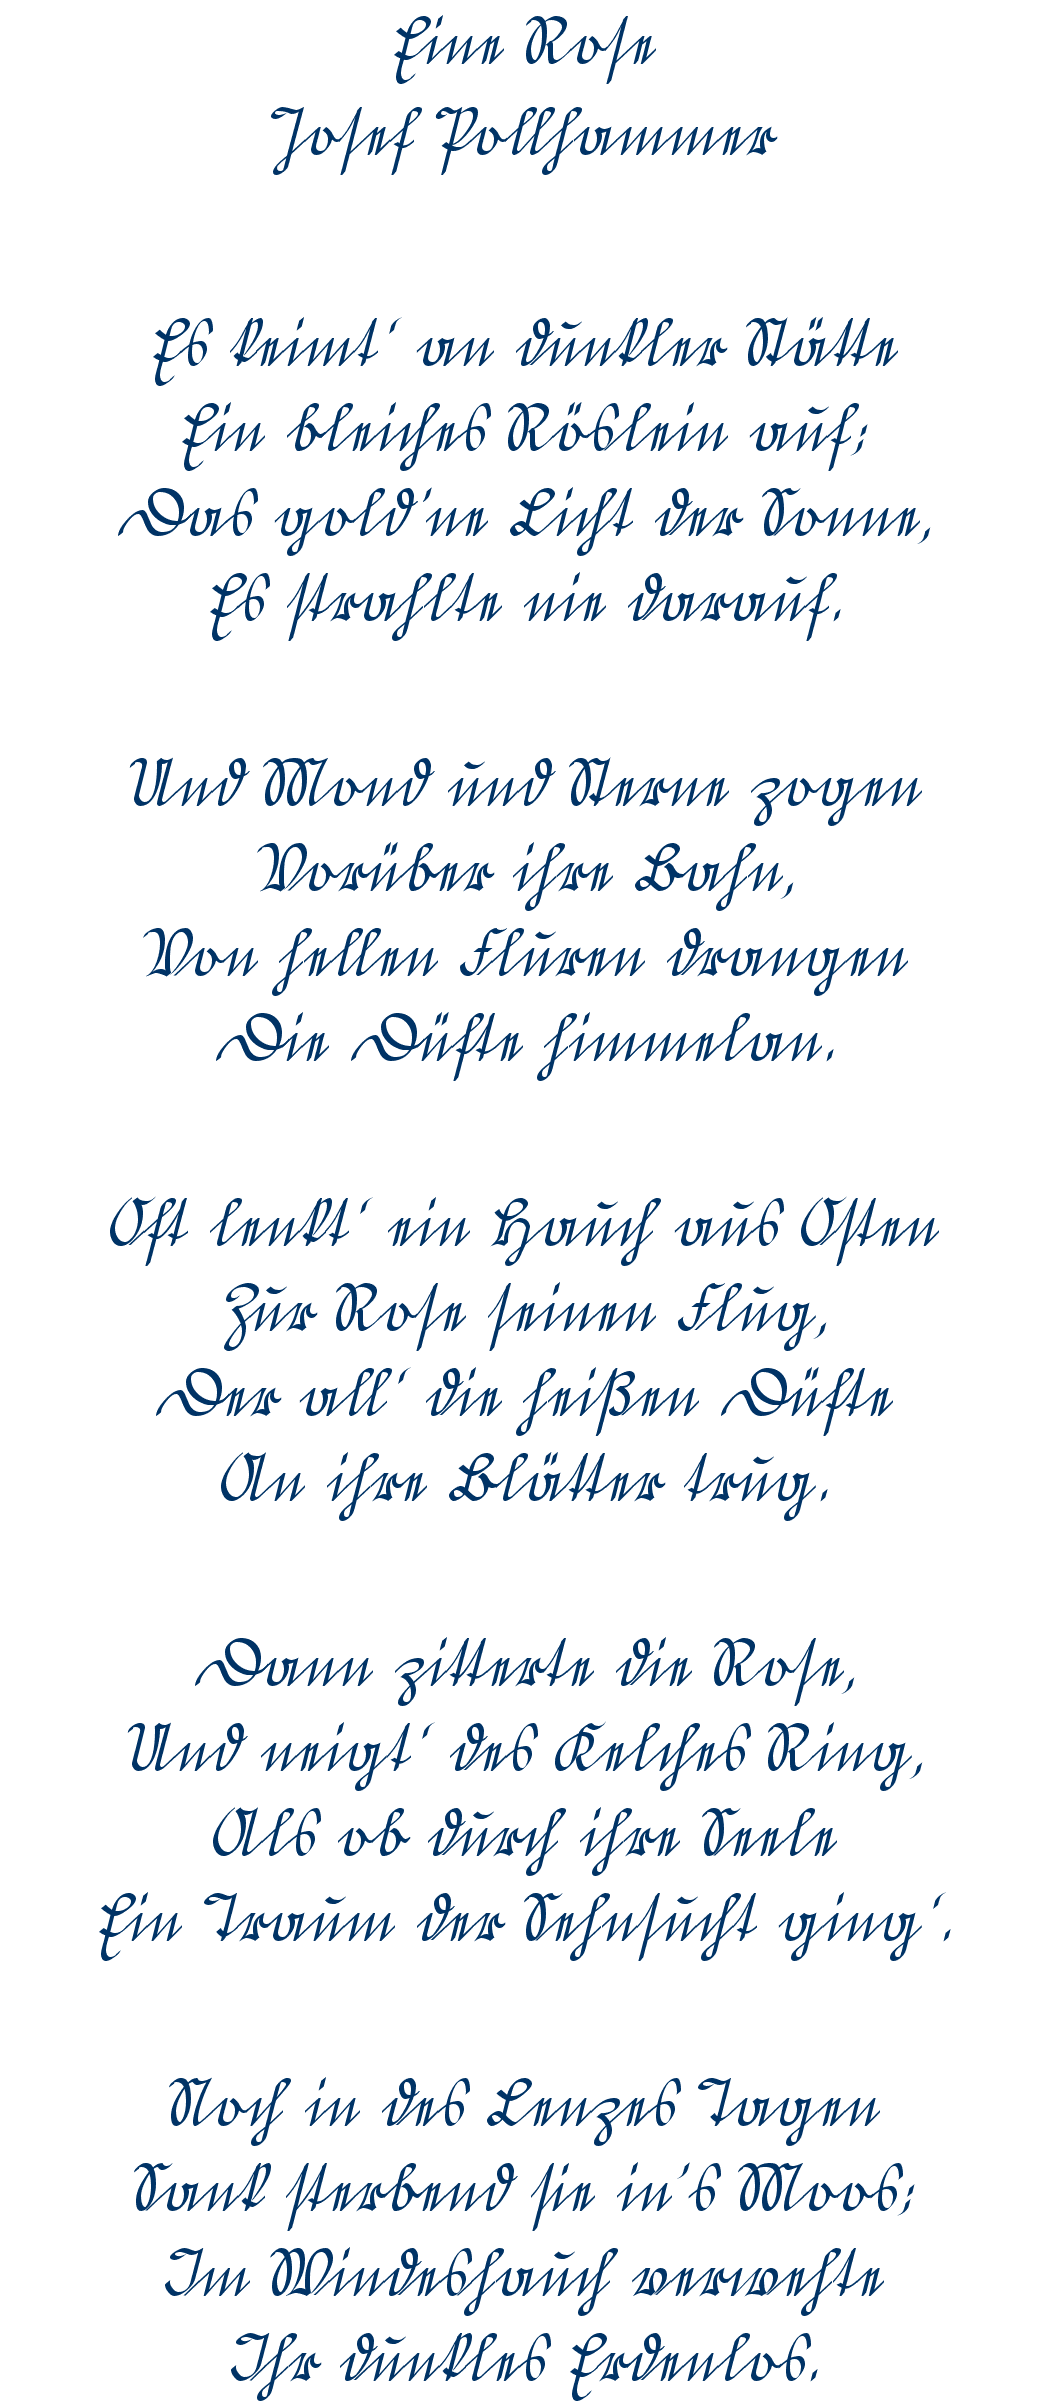 Eine Rose
Josef Pollhammer
Es keimt' an dunkler Stätte
Ein bleiches Röslein auf;
Das gold'ne Licht der Sonne,
Es strahlte nie darauf.
Und Mond und Sterne zogen
Vorüber ihre Bahn,
Von hellen Fluren drangen
Die Düfte himmelan.
Oft lenkt' ein Hauch aus Osten
Zur Rose seinen Flug,
Der all' die heißen Düfte
An ihre Blätter trug.
Dann zitterte die Rose,
Und neigt' des Kelches Ring,
Als ob durch ihre Seele
Ein Traum der Sehnsucht ging'.
Noch in des Lenzes Tagen
Sank sterbend sie in's Moos;
Im Windeshauch verwehte
Ihr dunkles Erdenlos.